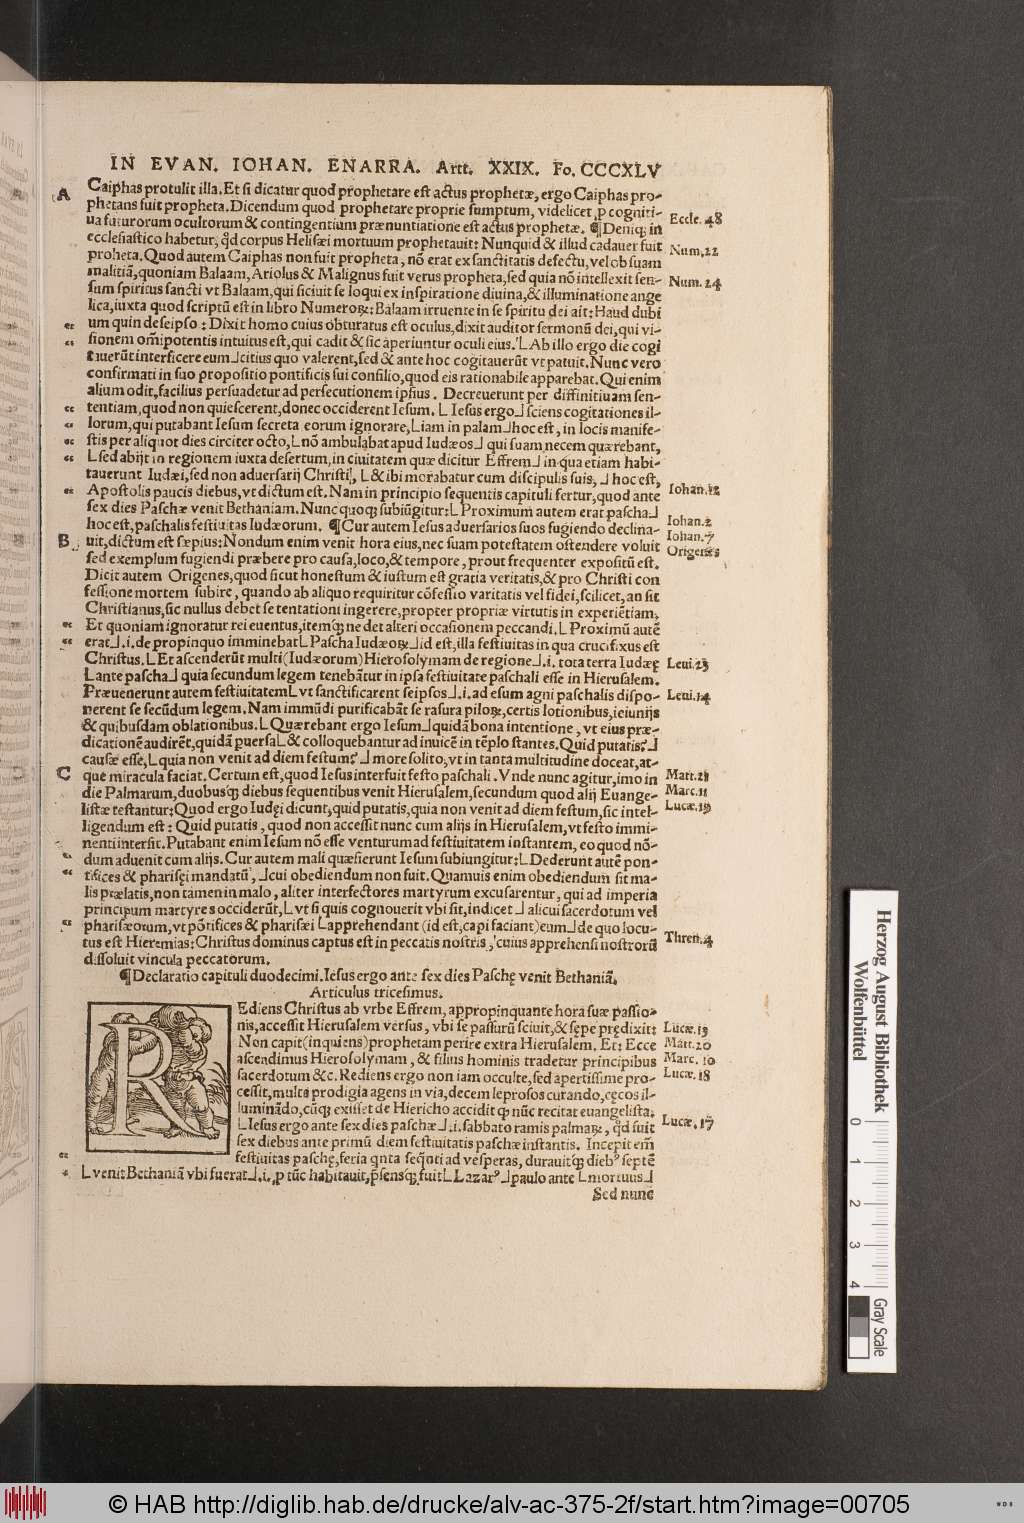 IN EVAN. IOHAN. ENARRA. Artt. XXIX. Fo. CCCXLV
A
Caiphas protulit illa. Et si dicatur quod prophetare est actus prophetæ, ergo Caiphas pro-
phetans fuit propheta. Dicendum quod prophetare proprie sumptum, videlicet ꝓ cogniti-
ua futurorum ocultorum & contingentium prænuntiatione est actus prophetæ. ¶ Deniq; in
ecclesiastico habetur, qd corpus Helisæi mortuum prophetauit: Nunquid & illud cadauer fuit
proheta. Quod autem Caiphas non fuit propheta, nō erat ex sanctitatis defectu, vel ob suam
malitiā, quoniam Balaam, Ariolus & Malignus fuit verus propheta, sed quia nō intellexit sen-
sum spiritus sancti vt Balaam, qui siciuit se loqui ex inspiratione diuina, & illuminatione ange
lica, iuxta quod scriptū est in libro Numeroꝝ: Balaam irruente in se spiritu dei ait: Haud dubi
um quin de seipso: Dixit homo cuius obturatus est oculus, dixit auditor sermonū dei, qui vi-
sionem om̄ipotentis intuitus est, qui cadit & sic aperiuntur oculi eius. ⌊Ab illo ergo die cogi
tauerūt interficere eum⌋ citius quo valerent, sed & ante hoc cogitauerūt vt patuit. Nunc vero
confirmati in suo propositio pontificis sui consilio, quod eis rationabile apparebat. Qui enim
alium odit, facilius persuadetur ad persecutionem ipsius. Decreuerunt per diffinitiuam sen-
tentiam, quod non quiescerent, donec occiderent Iesum. ⌊Iesus ergo⌋ sciens cogitationes il-
lorum, qui putabant Iesum secreta eorum ignorare, ⌊iam in palam⌋ hoc est, in locis manife-
stis per aliquot dies circiter octo, ⌊nō ambulabat apud Iudæos⌋ qui suam necem quærebant,
⌊sed abijt in regionem iuxta desertum, in ciuitatem quæ dicitur Effrem⌋ in qua etiam habi-
tauerunt Iudæi, sed non aduersarij Christi, ⌊& ibi morabatur cum discipulis suis,⌋ hoc est,
Apostolis paucis diebus, vt dictum est. Nam in principio sequentis capituli fertur, quod ante
sex dies Paschæ venit Bethaniam. Nunc quoq; subiūgitur: ⌊Proximum autem erat pascha⌋
hoc est, paschalis festiuitas Iudæorum. ¶ Cur autem Iesus aduersarios suos fugiendo declina-
B
uit, dictum est sæpius: Nondum enim venit hora eius, nec suam potestatem ostendere voluit
sed exemplum fugiendi præbere pro causa, loco, & tempore, prout frequenter expositū est.
Dicit autem Origenes, quod sicut honestum & iustum est gratia veritatis, & pro Christi con
fessione mortem subire, quando ab aliquo requiritur cōfessio varitatis vel fidei, scilicet, an sit
Christianus, sic nullus debet se tentationi ingerere, propter propriæ virtutis in experiētiam,
Et quoniam ignoratur rei euentus, itemq; ne det alteri occasionem peccandi. ⌊Proximū autē
erat⌋.i. de propinquo imminebat ⌊Pascha Iudæoꝝ⌋ id est, illa festiuitas in qua crucifixus est
Christus. ⌊Et ascenderūt multi (Iudæorum) Hierosolymam de regione⌋.i. tota terra Iudæę
⌊ante pascha⌋ quia secundum legem tenebātur in ipsa festiuitate paschali esse in Hierusalem.
Præuenerunt autem festiuitatem ⌊vt sanctificarent seipsos⌋.i. ad esum agni paschalis dispo-
nerent se secūdum legem. Nam immūdi purificabāt se rasura piloꝝ, certis lotionibus, ieiunijs
& quibusdam oblationibus. ⌊Quærebant ergo Iesum⌋ quidā bona intentione, vt eius præ-
dicationē audirēt, quidā ꝑuersa ⌊& colloquebantur ad inuicē in tēplo stantes. Quid putatis?⌋
causæ esse, ⌊quia non venit ad diem festum?⌋ more solito, vt in tanta multitudine doceat, at-
C
que miracula faciat. Certum est, quod Iesus interfuit festo paschali. Vnde nunc agitur, imo in
die Palmarum, duobusq; diebus sequentibus venit Hierusalem, secundum quod alij Euange-
listæ testantur: Quod ergo Iudęi dicunt, quid putatis, quia non venit ad diem festum, sic intel-
ligendum est: Quid putatis, quod non accessit nunc cum alijs in Hierusalem, vt festo immi-
nenti intersit. Putabant enim Iesum nō esse venturum ad festiuitatem instantem, eo quod nō-
dum aduenit cum alijs. Cur autem mali quæsierunt Iesum subiungitur: ⌊Dederunt autē pon-
tifices & pharisęi mandatū,⌋ cui obediendum non fuit. Quamuis enim obediendum sit ma-
lis prælatis, non tamen in malo, aliter interfectores martyrum excusarentur, qui ad imperia
principum martyres occiderūt, ⌊vt si quis cognouerit vbi sit, indicet⌋ alicui sacerdotum vel
pharisæorum, vt pōtifices & pharisæi ⌊apprehendant (id est, capi faciant) eum⌋ de quo locu-
tus est Hieremias: Christus dominus captus est in peccatis nostris, cuius apprehensi nostrorū
dissoluit vincula peccatorum.
¶ Declaratio capituli duodecimi. Iesus ergo ante sex dies Paschę venit Bethaniā.
Articulus tricesimus.
REdiens Christus ab vrbe Effrem, appropinquante hora suæ passio-
nis, accessit Hierusalem versus, vbi se passurū sciuit, & sępe prędixit:
Non capit (inquiens) prophetam perire extra Hierusalem. Et: Ecce
ascendimus Hierosolymam, & filius hominis tradetur principibus
sacerdotum &c. Rediens ergo non iam occulte, sed apertissime pro-
cessit, multa prodigia agens in via, decem leprosos curando, cęcos il-
luminādo, cūq; exisset de Hiericho accidit qp nūc recitat euangelista.
⌊Iesus ergo ante sex dies paschæ⌋.i. sabbato ramis palmaꝝ, qd fuit
sex diebus ante primū diem festiuitatis paschæ instantis. Incepit em̄
festiuitas paschę, feria qnta seq̄nti ad vesperas, durauitq; dieb⁹ septē
⌊venit Bethaniā vbi fuerat⌋.i. ꝓ tūc habitauit, p̄sensq; fuit ⌊Lazar⁹⌋ paulo ante ⌊mortuus⌋
Sed nunc
Eccle. 48
Num. 22
Num. 24
Iohan. 12
Iohan. 2
Iohan. 7
Origenes
Leui. 23
Leui. 14
Matt. 21
Marc. 11
Lucæ. 19
Thren. 4
Lucæ. 13
Matt. 20
Marc. 10
Lucæ. 18
Lucæ. 17
Herzog August Bibliothek
Wolfenbüttel
0 1 2 3 4
Gray Scale
© HAB http://diglib.hab.de/drucke/alv-ac-375-2f/start.htm?image=00705